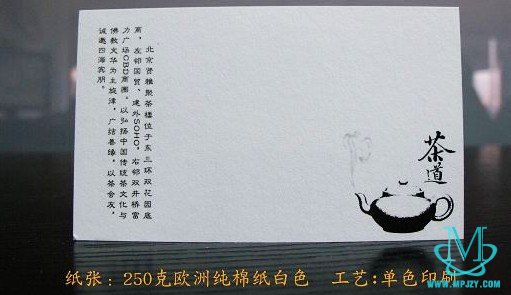 北京贤雅聚茶楼位于东三环双花园底
商，左邻国贸、建外SOHO，右邻双井桥富
力广场CBD商圈。以弘扬中国传统茶文化与
佛教文华为主旋律，广结善缘，以茶会友，
诚邀四海宾朋。
茶道
纸张：250克欧洲纯棉纸白色 工艺：单色印刷
WWW.MPJZY.COM